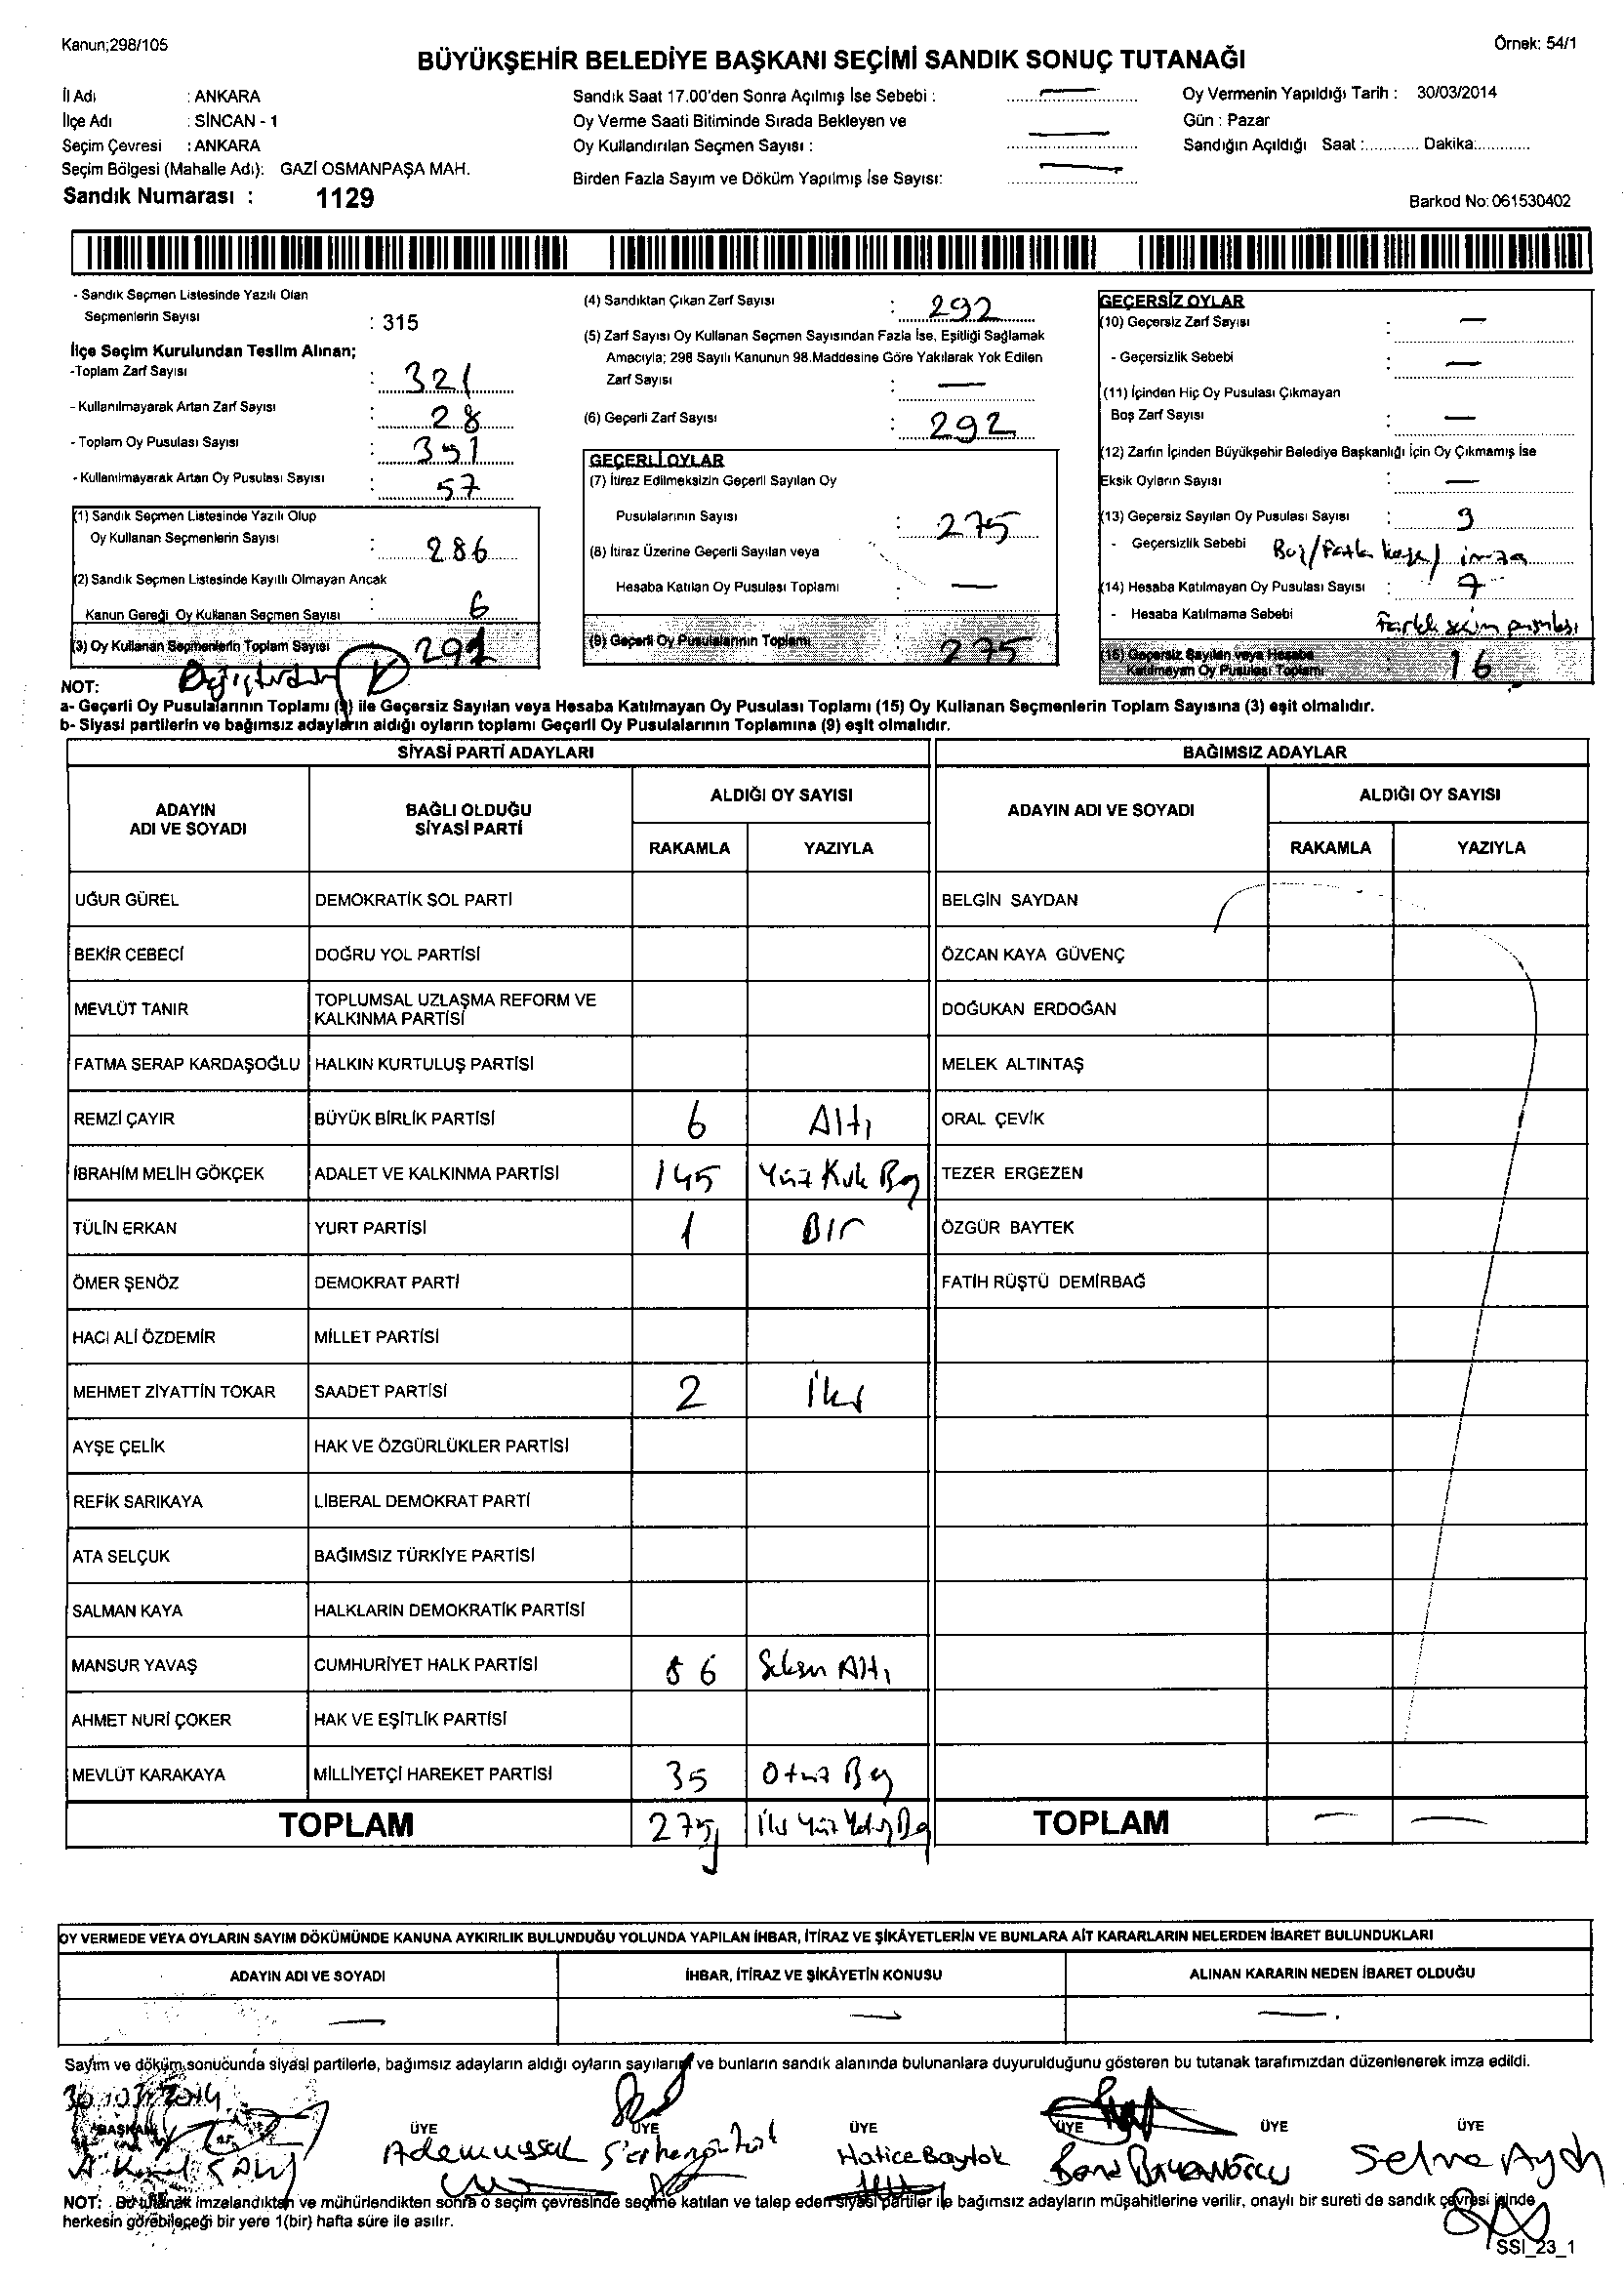 Kanun;298/105
Örnek: 54/1
BÜYÜKŞEHİR BELEDİYE BAŞKANI SEÇİMİ SANDIK SONUÇ TUTANAĞI
İl Adı : ANKARA
İlçe Adı : SİNCAN - 1
Seçim Çevresi : ANKARA
Seçim Bölgesi (Mahalle Adı): GAZİ OSMANPAŞA MAH.
Sandık Numarası : 1129
Sandık Saat 17.00'den Sonra Açılmış İse Sebebi : —
Oy Verme Saati Bitiminde Sırada Bekleyen ve
Oy Kullandırılan Seçmen Sayısı : —
Birden Fazla Sayım ve Döküm Yapılmış İse Sayısı: —
Oy Vermenin Yapıldığı Tarih : 30/03/2014
Gün : Pazar
Sandığın Açıldığı Saat :........... Dakika:...........
Barkod No: 061530402
- Sandık Seçmen Listesinde Yazılı Olan
Seçmenlerin Sayısı : 315
İlçe Seçim Kurulundan Teslim Alınan;
-Toplam Zarf Sayısı : 321
- Kullanılmayarak Artan Zarf Sayısı : 28
- Toplam Oy Pusulası Sayısı : 351
- Kullanılmayarak Artan Oy Pusulası Sayısı : 57
(1) Sandık Seçmen Listesinde Yazılı Olup
Oy Kullanan Seçmenlerin Sayısı : 286
(2) Sandık Seçmen Listesinde Kayıtlı Olmayan Ancak
Kanun Gereği Oy Kullanan Seçmen Sayısı : 6
(3) Oy Kullanan Seçmenlerin Toplam Sayısı 291
(4) Sandıktan Çıkan Zarf Sayısı : 292
(5) Zarf Sayısı Oy Kullanan Seçmen Sayısından Fazla İse, Eşitliği Sağlamak
Amacıyla; 298 Sayılı Kanunun 98.Maddesine Göre Yakılarak Yok Edilen
Zarf Sayısı : —
(6) Geçerli Zarf Sayısı : 292
GEÇERLİ OYLAR
(7) İtiraz Edilmeksizin Geçerli Sayılan Oy
Pusulalarının Sayısı : 275
(8) İtiraz Üzerine Geçerli Sayılan veya
Hesaba Katılan Oy Pusulası Toplamı : —
(9) Geçerli Oy Pusulalarının Toplamı : 275
GEÇERSİZ OYLAR
(10) Geçersiz Zarf Sayısı : —
- Geçersizlik Sebebi : —
(11) İçinden Hiç Oy Pusulası Çıkmayan
Boş Zarf Sayısı : —
(12) Zarfın İçinden Büyükşehir Belediye Başkanlığı İçin Oy Çıkmamış İse
Eksik Oyların Sayısı : —
(13) Geçersiz Sayılan Oy Pusulası Sayısı : 9
- Geçersizlik Sebebi Boş/Fazla kaşe/ imza
(14) Hesaba Katılmayan Oy Pusulası Sayısı : 7
- Hesaba Katılmama Sebebi Farklı seçim pusulası
(15) Geçersiz Sayılan veya Hesaba
Katılmayan Oy Pusulası Toplamı : 16
NOT:
a- Geçerli Oy Pusulalarının Toplamı (9) ile Geçersiz Sayılan veya Hesaba Katılmayan Oy Pusulası Toplamı (15) Oy Kullanan Seçmenlerin Toplam Sayısına (3) eşit olmalıdır.
b- Siyasi partilerin ve bağımsız adayların aldığı oyların toplamı Geçerli Oy Pusulalarının Toplamına (9) eşit olmalıdır.
SİYASİ PARTİ ADAYLARI BAĞIMSIZ ADAYLAR
ADAYIN ADI VE SOYADI BAĞLI OLDUĞU SİYASİ PARTİ ALDIĞI OY SAYISI ADAYIN ADI VE SOYADI ALDIĞI OY SAYISI
RAKAMLA YAZIYLA RAKAMLA YAZIYLA
UĞUR GÜREL DEMOKRATİK SOL PARTİ BELGİN SAYDAN
BEKİR CEBECİ DOĞRU YOL PARTİSİ ÖZCAN KAYA GÜVENÇ
MEVLÜT TANIR TOPLUMSAL UZLAŞMA REFORM VE KALKINMA PARTİSİ DOĞUKAN ERDOĞAN
FATMA SERAP KARDAŞOĞLU HALKIN KURTULUŞ PARTİSİ MELEK ALTINTAŞ
REMZİ ÇAYIR BÜYÜK BİRLİK PARTİSİ 6 Altı ORAL ÇEVİK
İBRAHİM MELİH GÖKÇEK ADALET VE KALKINMA PARTİSİ 145 Yüz Kırk Beş TEZER ERGEZEN
TÜLİN ERKAN YURT PARTİSİ 1 Bir ÖZGÜR BAYTEK
ÖMER ŞENÖZ DEMOKRAT PARTİ FATİH RÜŞTÜ DEMİRBAĞ
HACI ALİ ÖZDEMİR MİLLET PARTİSİ
MEHMET ZİYATTİN TOKAR SAADET PARTİSİ 2 İki
AYŞE ÇELİK HAK VE ÖZGÜRLÜKLER PARTİSİ
REFİK SARIKAYA LİBERAL DEMOKRAT PARTİ
ATA SELÇUK BAĞIMSIZ TÜRKİYE PARTİSİ
SALMAN KAYA HALKLARIN DEMOKRATİK PARTİSİ
MANSUR YAVAŞ CUMHURİYET HALK PARTİSİ 86 Seksen Altı
AHMET NURİ ÇOKER HAK VE EŞİTLİK PARTİSİ
MEVLÜT KARAKAYA MİLLİYETÇİ HAREKET PARTİSİ 35 Otuz Beş
TOPLAM 275 İki Yüz Yetmiş Beş TOPLAM — —
OY VERMEDE VEYA OYLARIN SAYIM DÖKÜMÜNDE KANUNA AYKIRILIK BULUNDUĞU YOLUNDA YAPILAN İHBAR, İTİRAZ VE ŞİKÂYETLERİN VE BUNLARA AİT KARARLARIN NELERDEN İBARET BULUNDUKLARI
ADAYIN ADI VE SOYADI İHBAR, İTİRAZ VE ŞİKÂYETİN KONUSU ALINAN KARARIN NEDEN İBARET OLDUĞU
— — —
Sayım ve döküm sonucunda siyasi partilerle, bağımsız adayların aldığı oyların sayılarını ve bunların sandık alanında bulunanlara duyurulduğunu gösteren bu tutanak tarafımızdan düzenlenerek imza edildi.
30.03.2014
BAŞKAN ÜYE ÜYE ÜYE ÜYE ÜYE ÜYE
Hatice Baytok
NOT: Bu tutanak imzalandıktan ve mühürlendikten sonra o seçim çevresinde seçime katılan ve talep eden siyasi partiler ile bağımsız adayların müşahitlerine verilir, onaylı bir sureti de sandık çevresi içinde
herkesin görebileceği bir yere 1(bir) hafta süre ile asılır.
SSI_23_1